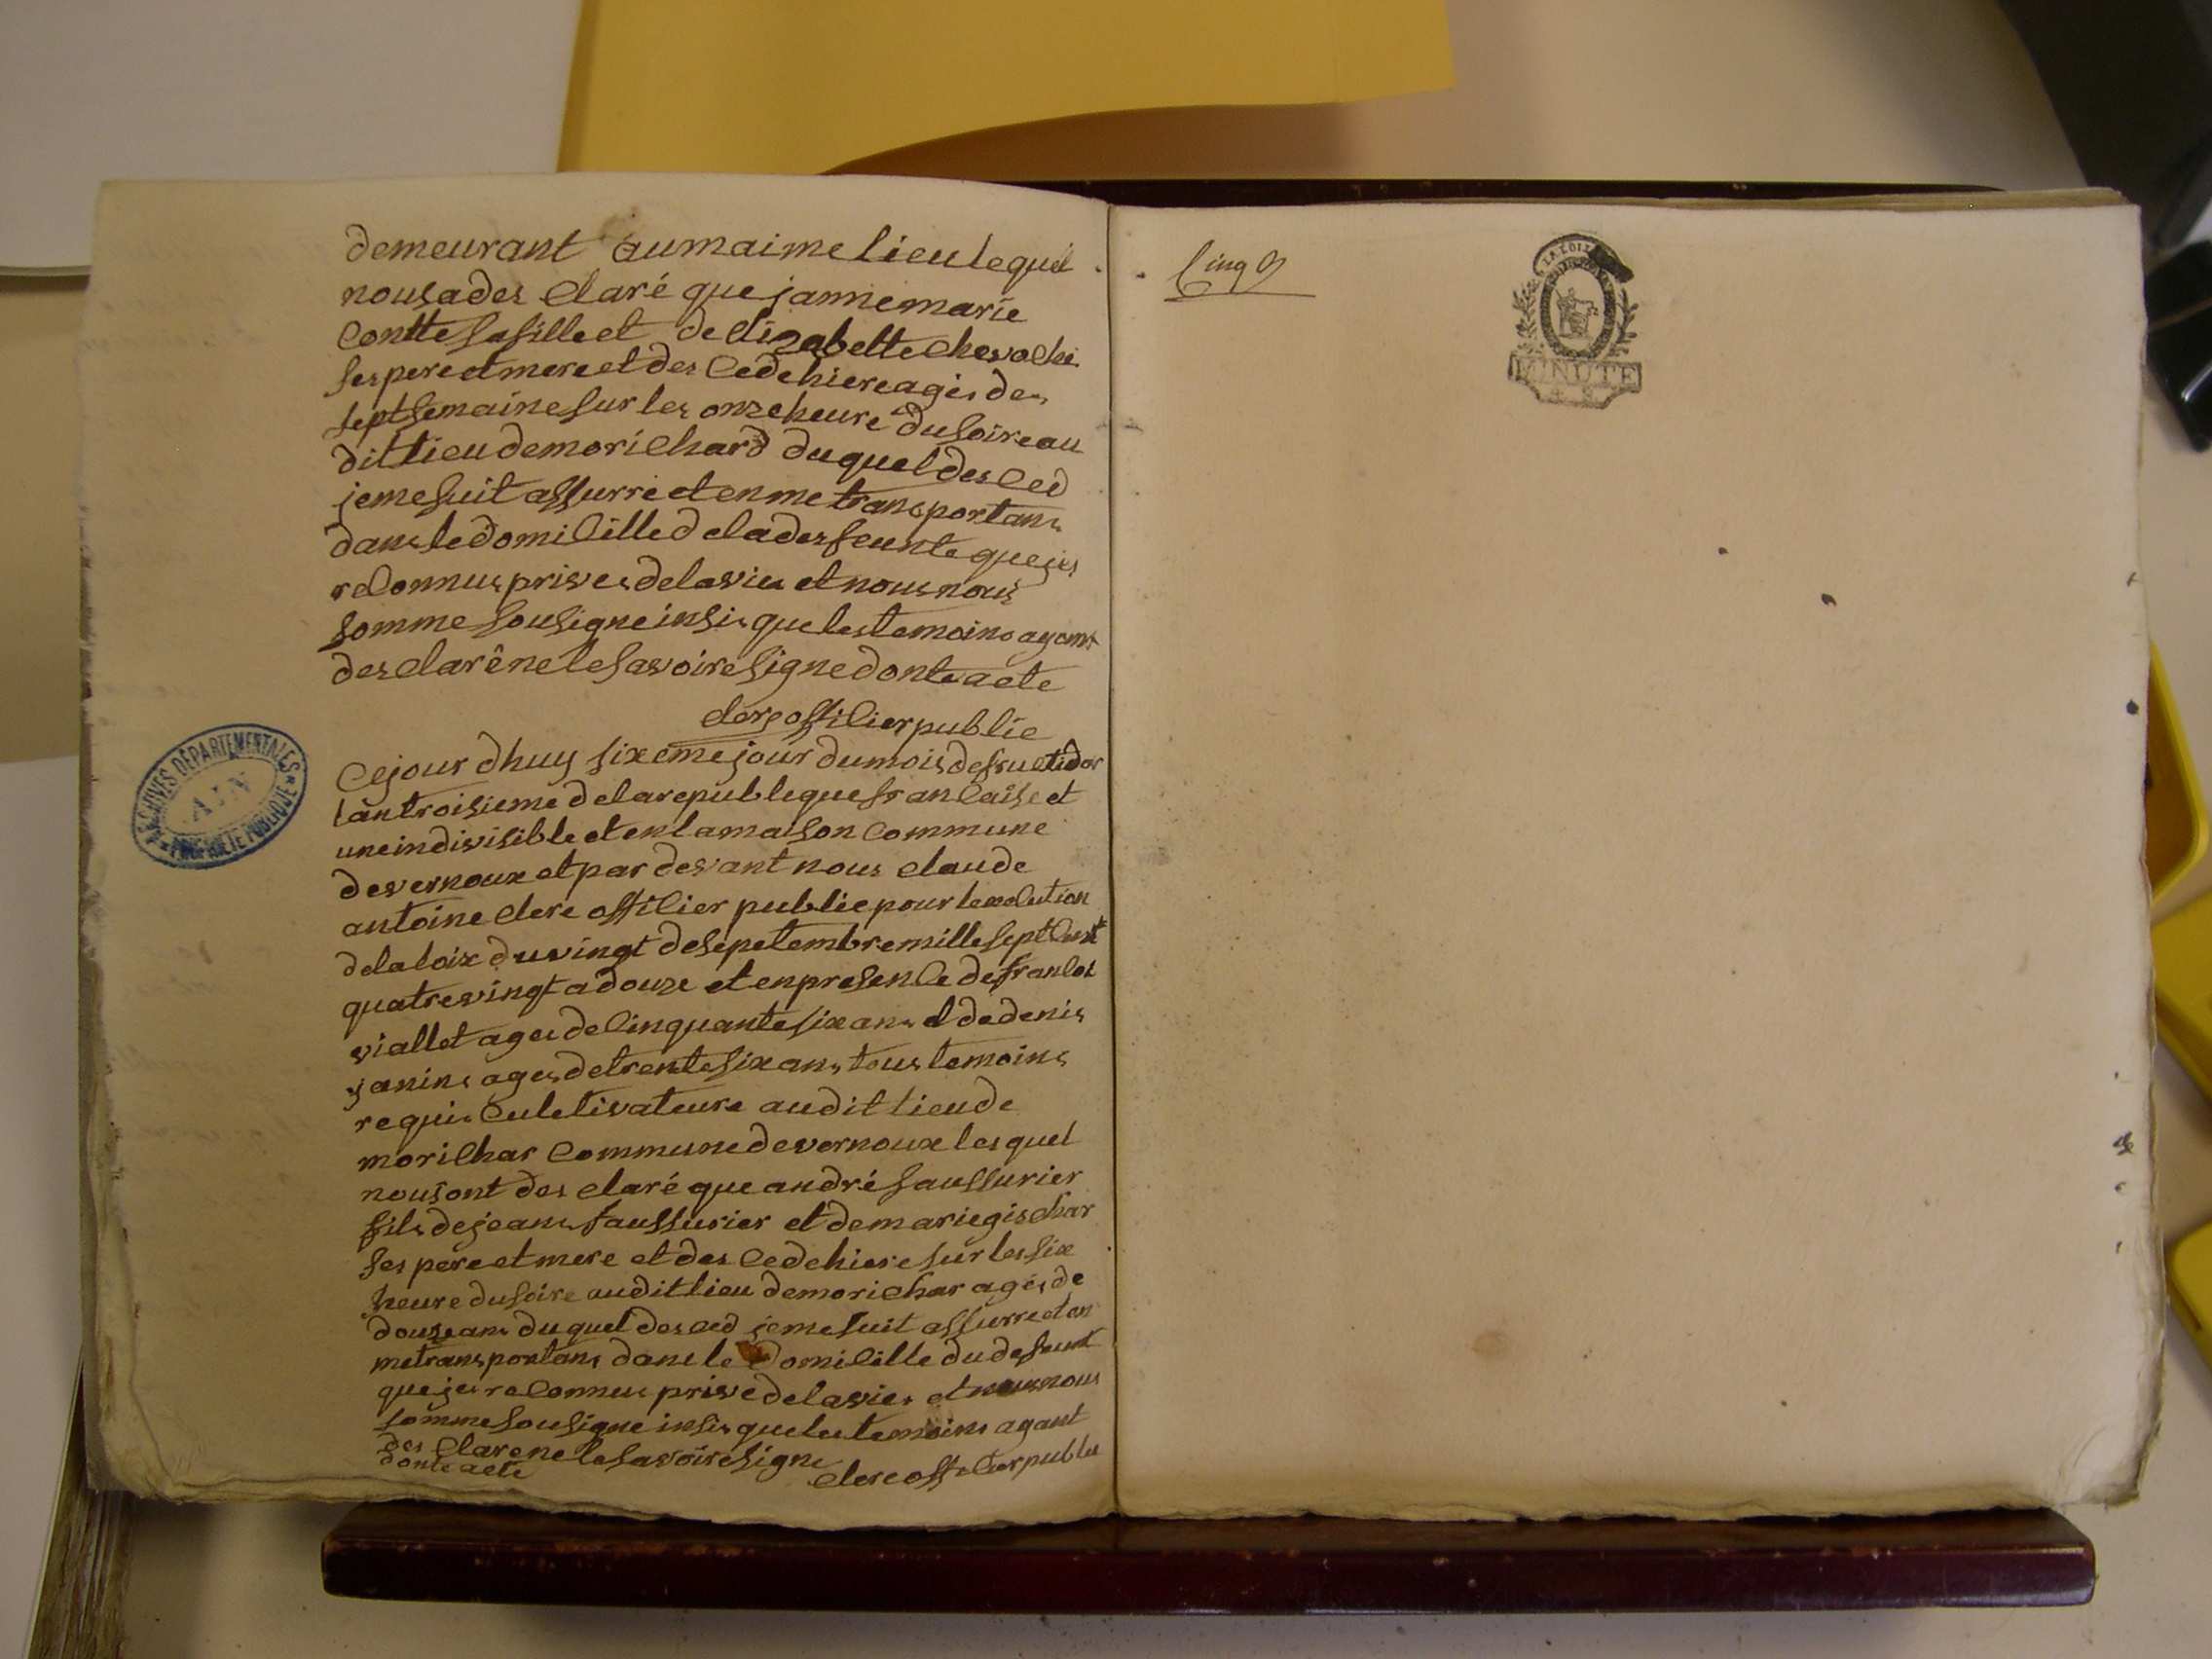 demeurant aumaime lieu lequel
nous a des claré que janne marie
Contte sa fille et de elizabette chevachi
ses pere et mere et des cede hiere ages de
sept semaine sur les onze heure du soire au
dit lieu de morichard du quel des ced
je me suit assurré et en me transportans
dans le domicille de la des feunte que jes
reconnus prives de la vies et nous nous
somme sousigne insis que les temoins ayant
des claré ne le savoire signe donte acte
clerc officier public
Cejour dhuy sixeme jour du mois de fructidor
lan troisieme de la republeque francaise et
une indivisible et en la maison commune
de vernoux et par devant nous claude
antoine clerc officier public pour lexolution
de la loix du vingt de sepetembre mille sept cent
quatre vingt a douze et en presence de francos
viallet ages de cinquante six ans et de denis
janins ages de trente six ans tous temoins
requis culetivateure audit lieu de
morichar commune de vernoux les quel
nous ont des claré que andré saussurier
fils de jeans saussurier et de marie gischar
ses pere et mere et des cede hiere sur les six
heure du soire audit lieu de morichar ages de
douze ans du quel des ced je me suit assurre et en
me transportans dans le domicille du defeunt
que jes reconnus prive de la vies et nous nous
somme sousigne insis que les temoins ayant
des clare ne le savoire signe
donte acte clerc officier public
ARCHIVES DÉPARTEMENTALES
AIN
PROPRIÉTÉ PUBLIQUE
Cinq
LA LOI
MINUTE